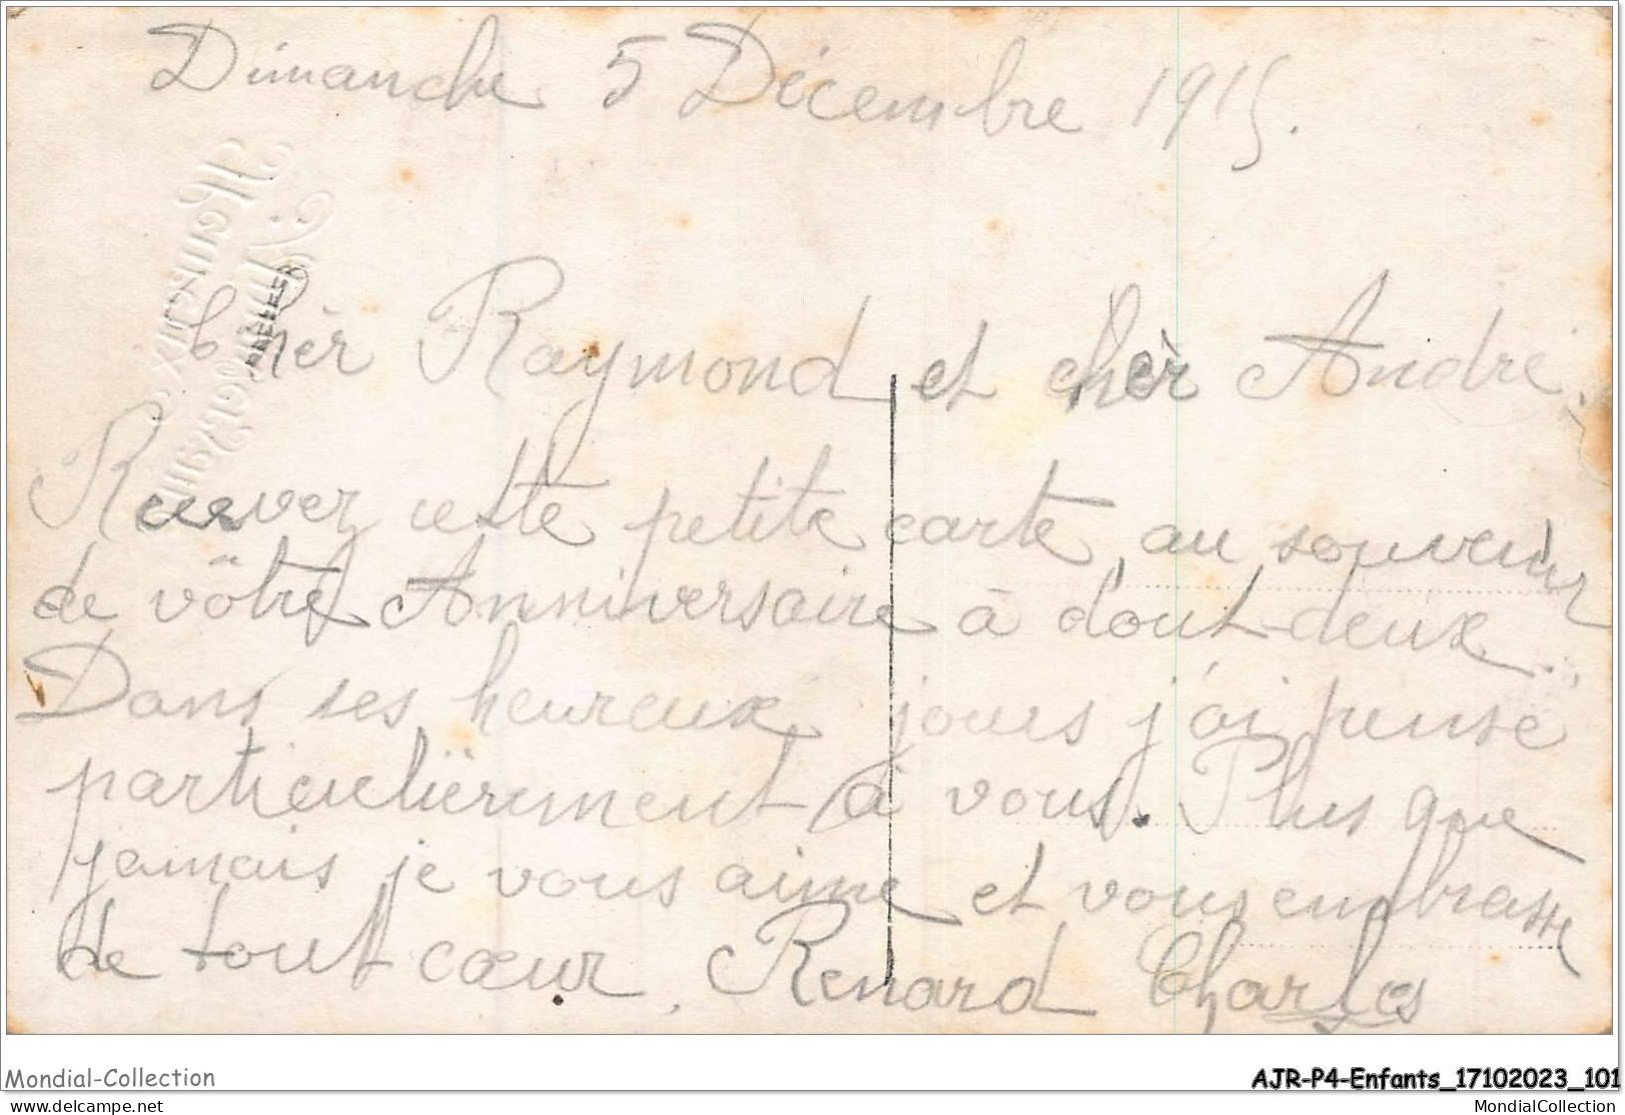 Dimanche 5 Décembre 1915.
Cher Raymond et cher André.
Recevez cette petite carte, au souvenir
de vôtre Anniversaire à tout deux.
Dans ses heureux jours j'ai pensé
particulièrement à vous. Plus que
jamais je vous aime et vous embrasse
de tout cœur. Renard Charles
Mondial-Collection
AJR-P4-Enfants_17102023_101
www.delcampe.net
MondialCollection